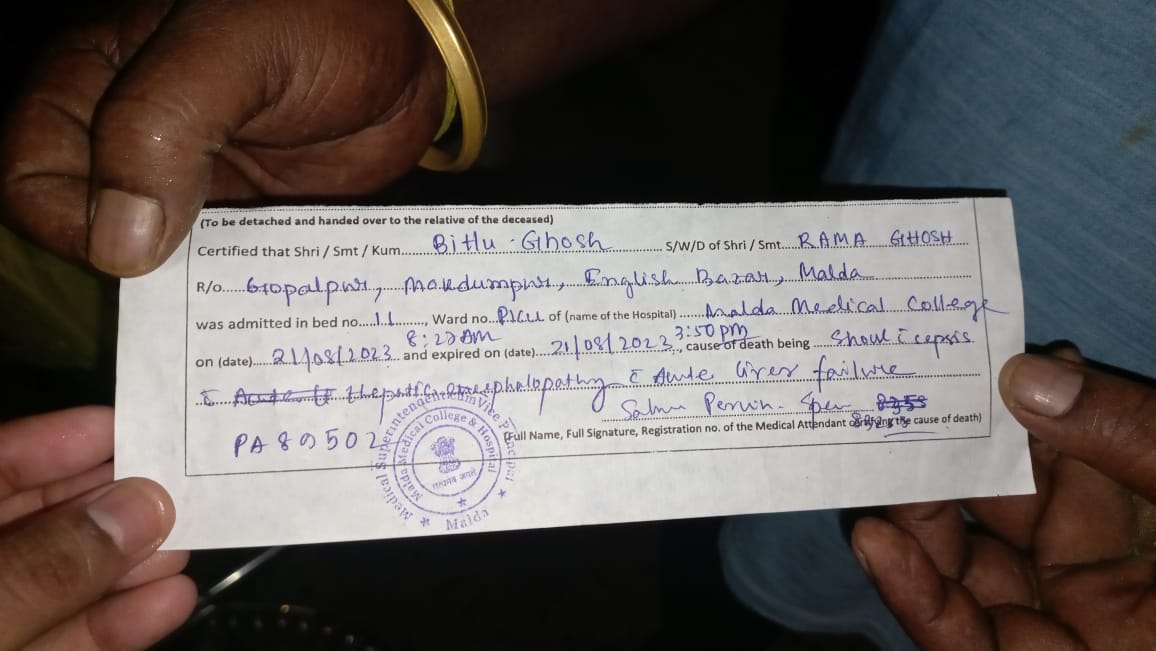 (To be detached and handed over to the relative of the deceased)
Certified that Shri / Smt / Kum. Bitlu Ghosh S/W/D of Shri / Smt. RAMA GHOSH
R/o. Gopalpur, Makdumpur, English Bazar, Malda
was admitted in bed no. 11, Ward no. PICU of (name of the Hospital) Malda Medical College
on (date) 21/08/2023 8:20 AM and expired on (date) 21/08/2023 3:50 pm, cause of death being Shock c̄ cepsis
c̄ Hepatic Encephalopathy c̄ Acute liver failure
PA 89502
(Full Name, Full Signature, Registration no. of the Medical Attendant certifying the cause of death)
Medical Superintendent cum Vice Principal
Malda Medical College & Hospital
सत्यमेव जयते
Malda